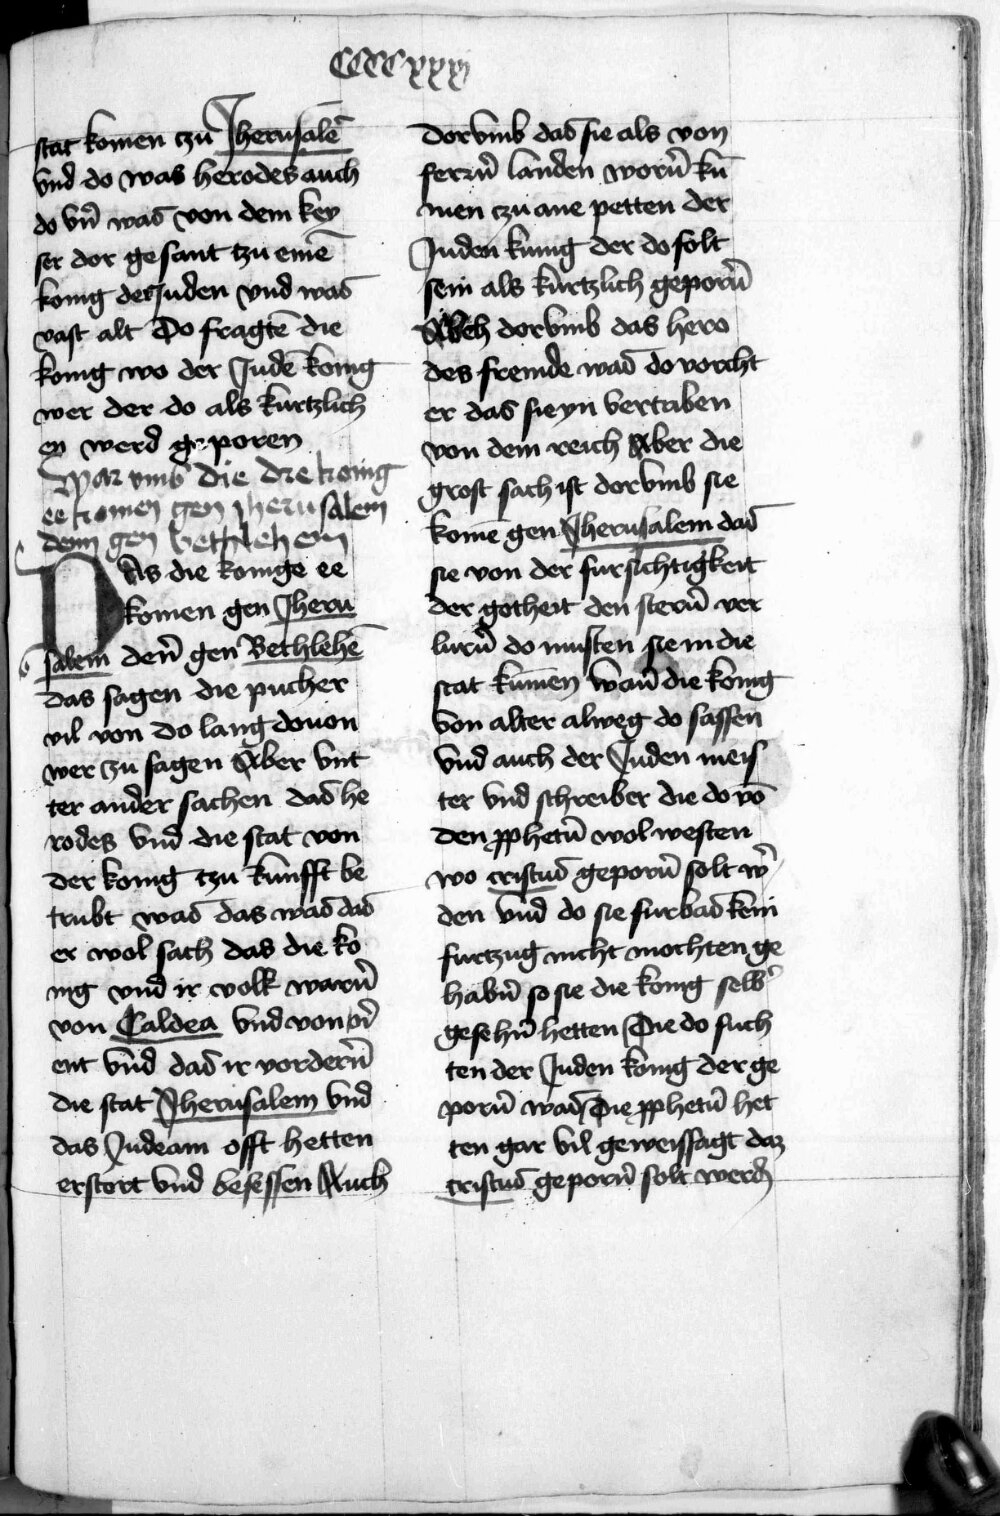 CCCCxxxj
stat komen tzu Jherusalē
vnd do was herodes auch
do vn̄ was von dem key
ser dor gesant tzu einē
konig der Juden vnd was
vast alt Do fragtē die
konig wo der Judē konig
wer der do als kurtzlich
en werd geporen
War vmb die dre konig
ee komen gen jherusalem
denn gen bethlehem
DAs die konige ee
komen gen Jheru
salem den̄ gen Bethlehē
das sagen die pucher
vil von do lang douon
wer zu sagen Aber vnt
ter ander sachen das he
rodes vnd die stat von
der konig tzu kunfft be
trubt was das was das
er wol sach das die ko
nig vnd ir volk warn̄
von Caldea vnd von ori
ent vnd das ir vordern̄
die stat Jherusalem vnd
das Judeam offt hetten
erstort vnd besessen Auch
dorvmb das sie als von
ferrn̄ landen worn̄ ku
men czu ane petten der
Juden kunig der do solt
sein als kurtzlich geporn̄
Auch dorvmb das hero
des fremde was do vorcht
er das sie yn vertriben
von dem reich Aber die
grost sach ist dorvmb sie
komē gen Jherusalem das
sie von der fursichtigkeit
der gotheit den stern̄ ver
lurn̄ do musten sie in die
stat kumen wan̄ die konig
von alter alweg do sassen
vnd auch der Juden meis
ter vnd schreiber die do vō
den ꝓphetn̄ wol westen
wo cristus geporn̄ solt w̄
den vnd do sie furbas kein
furtzug nicht mochten ge
habn̄ so sie die konig selb
gesehn̄ hetten Die do such
ten der Juden konig der ge
porn̄ was Die ꝓphetn̄ het
ten gar vil geweissagt daz
cristus geporn̄ solt werdn̄